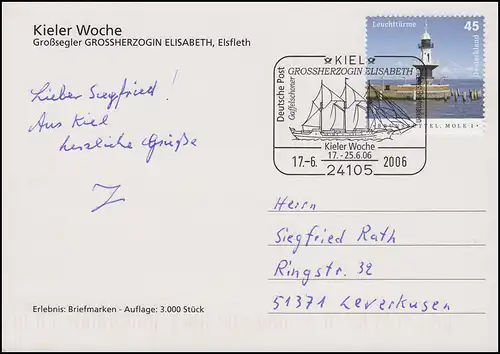 Kieler Woche
Großsegler GROSSHERZOGIN ELISABETH, Elsfleth
Lieber Siegfried!
Aus Kiel
herzliche Grüße
Leuchttürme
45
Deutschland
MOLE 1
KIEL
GROSSHERZOGIN ELISABETH
Deutsche Post
Gaffelschoner
Kieler Woche
17. - 25.6.06
17.-6. 2006
24105
Herrn
Siegfried Rath
Ringstr. 32
51371 Leverkusen
Erlebnis: Briefmarken - Auflage: 3.000 Stück